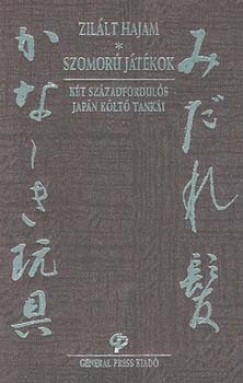 ZILÁLT HAJAM
*
SZOMORÚ JÁTÉKOK
KÉT SZÁZADFORDULÓS
JAPÁN KÖLTŐ TANKÁI
みだれ髪
かなしき玩具
GP
GENERAL PRESS KIADÓ